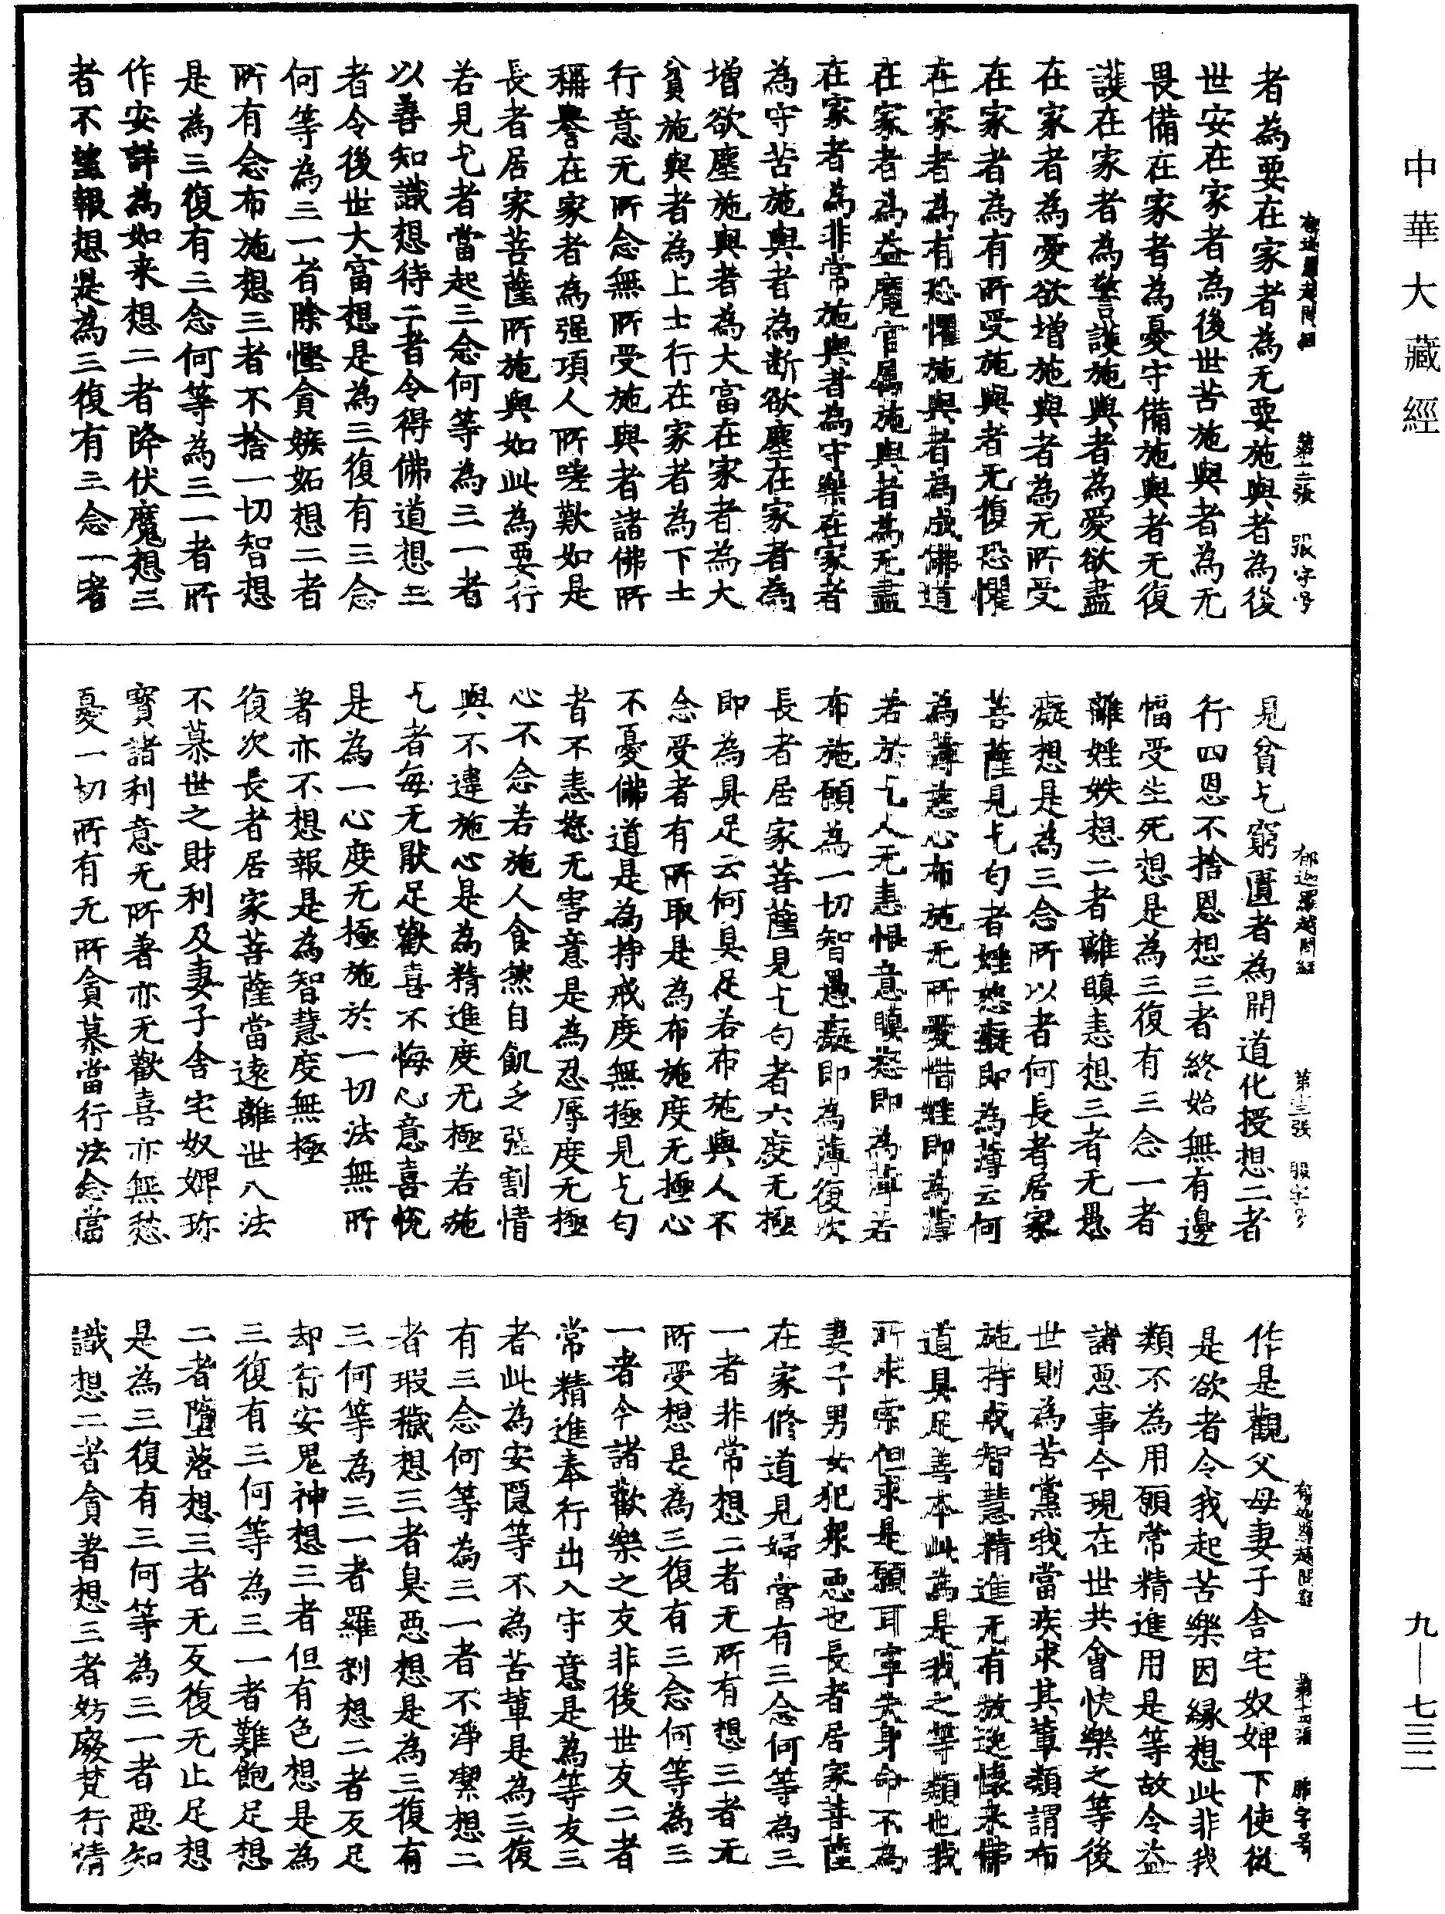 中華大藏經
九—七三二
郁迦羅越問經 第十二張 服字号
者為要在家者為无要施與者為後
世安在家者為後世苦施與者為无
畏備在家者為憂守備施與者无復
護在家者為警護施與者為愛欲盡
在家者為愛欲增施與者為无所受
在家者為有所受施與者无復恐懼
在家者為有恐懼施與者為成佛道
在家者為益魔官屬施與者為无盡
在家者為非常施與者為守樂在家者
為守苦施與者為断欲塵在家者為
增欲塵施與者為大富在家者為大
貧施與者為上士行在家者為下士
行意无所念無所受施與者諸佛所
稱譽在家者為强項人所嗟歎如是
長者居家菩薩所施與如此為要行
若見乞者當起三念何等為三一者
以善知識想待二者令得佛道想三
者令後世大富想是為三復有三念
何等為三一者除慳貪嫉妬想二者
所有念布施想三者不捨一切智想
是為三復有三念何等為三一者所
作安詳為如来想二者降伏魔想三
者不望報想是為三復有三念一者
郁迦羅越問經 第十三張 服字号
見貧乞窮匱者為開道化授想二者
行四恩不捨恩想三者終始無有邊
幅受生死想是為三復有三念一者
離婬妷想二者離瞋恚想三者无愚
癡想是為三念所以者何長者居家
菩薩見乞匄者婬怒癡即為薄云何
為薄慈心布施无所愛惜婬即為薄
若於乞人无恚恨意瞋怒即為薄若
布施願為一切智愚癡即為薄復次
長者居家菩薩見乞匄者六度无極
即為具足云何具足若布施與人不
念受者有所取是為布施度无極心
不憂佛道是為持戒度無極見乞匄
者不恚怒无害意是為忍辱度无極
心不念若施人食㷱自飢乏强割情
與不違施心是為精進度无極若施
乞者每无猒足歡喜不悔心意喜悅
是為一心度无極施於一切法無所
著亦不想報是為智慧度無極
復次長者居家菩薩當遠離世八法
不慕世之財利及妻子舍宅奴婢珎
寶諸利意无所著亦无歡喜亦無愁
憂一切所有无所貪慕當行法念當
郁迦羅越問經 第十四張 服字号
作是觀父母妻子舍宅奴婢下使従
是欲者令我起苦樂因緣想此非我
類不為用願常精進用是等故令益
諸惡事今現在世共會快樂之等後
世則為苦黨我當疾求其輩類謂布
施持戒智慧精進无有放逸懷来佛
道具足善本此為是我之等類也我
所求索但求是願耳寧失身命不為
妻子男女犯眾惡也長者居家菩薩
在家修道見婦當有三念何等為三
一者非常想二者无所有想三者无
所受想是為三復有三念何等為三
一者今諸歡樂之友非後世友二者
常精進奉行出入守意是為等友三
者此為安隱等不為苦輩是為三復
有三念何等為三一者不淨潔想二
者瑕穢想三者臭惡想是為三復有
三何等為三一者羅刹想二者反足
却𠕅安鬼神想三者但有色想是為
三復有三何等為三一者難飽足想
二者墮落想三者无反復无止足想
是為三復有三何等為三一者惡知
識想二者貪著想三者妨廢梵行清